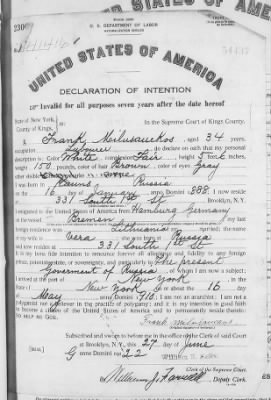 STATES OF AMERICA
U. S. DEPARTMENT OF LABOR
UNITED STATES OF AMERICA
DECLARATION OF INTENTION
Invalid for all purposes seven years after the date hereof
State of New York,
County of Kings,
In the Supreme Court of Kings County.
I, Frank Milusauckos, aged 34 years,
occupation, do declare on oath that my personal
description is: Color White, complexion Fair, height 5 feet inches,
weight 150 pounds, color of hair Brown, color of eyes Gray
I was born in Kauns Russia
on the 16 day of January, anno Domini 1888; I now reside
at 331 South 1st St, Brooklyn, N.Y.
I emigrated to the United States of America from Hamburg Germany
on the vessel Bremen; my last
foreign residence was Lithuania; I am married; the name
of my wife is Vera; she was born at Russia
and now resides at 331 South 1st St
It is my bona fide intention to renounce forever all allegiance and fidelity to any foreign
prince, potentate, state, or sovereignty, and particularly to The present
Goverment of Russia, of whom I am now a subject;
I arrived at the port of New York, in the
State of New York, on or about the 16 day
of May, anno Domini 1910; I am not an anarchist; I am not a
polygamist nor a believer in the practice of polygamy; and it is my intention in good faith
to become a citizen of the United States of America and to permanently reside therein:
SO HELP ME GOD.
Subscribed and sworn to before me in the office of the Clerk of said Court
at Brooklyn, N.Y., this 27 day of June
anno Domini 1922
Clerk of the Supreme Court.
By William J. Farrell, Deputy Clerk.